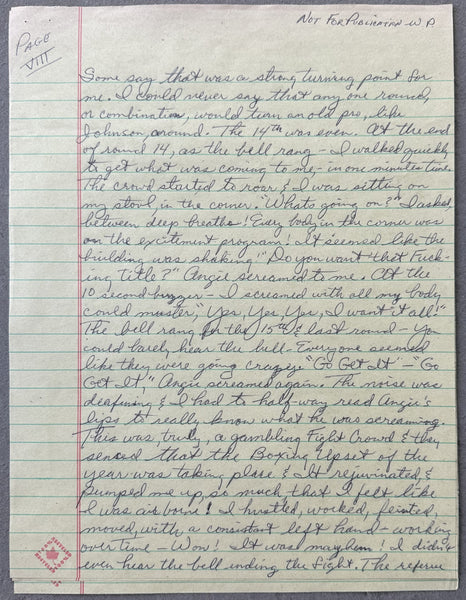 Not For Publication - W P
PAGE
VIII
Some say that was a strong turning point for
me. I could never say that any one round,
or combination, would turn an old pro, like
Johnson, around. The 14th was even. At the end
of round 14, as the bell rang - I walked quickly
to get what was coming to me, - in one minutes time.
The crowd started to roar & I was setting on
my stool, in the corner. "Whats going on?" I asked,
between deep breaths! Every body in the corner was
on the excitement program! It seemed like the
building was shaking! "Do you want that Fuck-
ing title?" Angie screamed to me. At the
10 second buzzer - I screamed with all my body
could muster, "Yes, Yes, Yes, I want it all!"
The bell rang for the 15th & last round - You
could barely hear the bell - Everyone seemed
like they were going crazy: "Go Get It" - "Go
Get It," Angie screamed again. The noise was
deafining & I had to half-way read Angie's
lips to really know what he was screaming.
This was truly, a gambling Fight Crowd & they
sensed that the Boxing Upset of the
Year was taking place & It rejuvinated, &
pumped me up, so much that I felt like
I was air borne! I hustled, worked, feinted,
moved, with a consistant left hand - working
over time - Wow! It was mayhem! I didn't
even hear the bell ending the fight. The referee